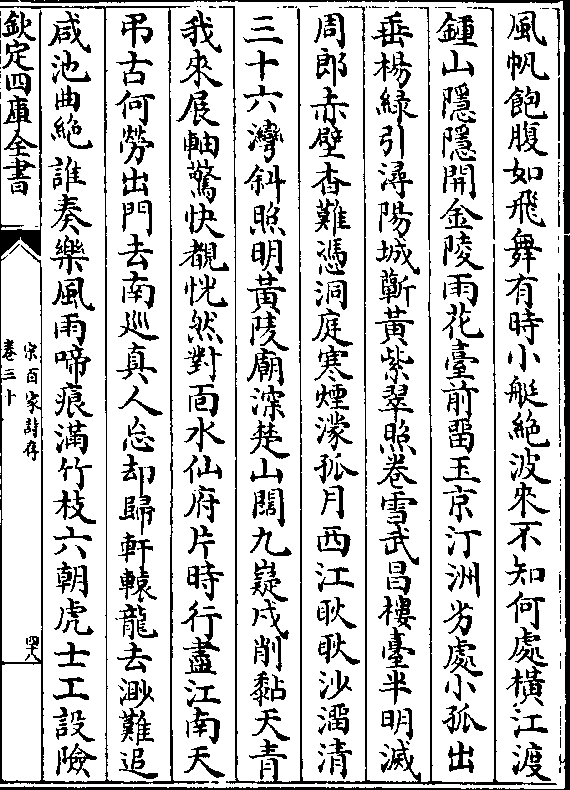 風帆飽腹如飛舞有時小艇絶波來不知何處橫江渡
鍾山隱隱開金陵雨花臺前畱玉京汀洲劣處小孤出
垂楊緑引潯陽城蘄黃紫翠照卷雪武昌樓臺半明滅
周郎赤壁杳難憑洞庭寒煙濛孤月西江耿耿沙溜清
三十六灣斜照明黃陵廟深楚山闊九嶷戍削黏天青
我來展軸驚快覩恍然對面水仙府片時行盡江南天
弔古何勞出門去南巡真人忘却歸軒轅龍去渺難追
咸池曲絶誰奏樂風雨啼痕滿竹枝六朝虎士工設險
欽定四庫全書
宋百家詩存
卷三十